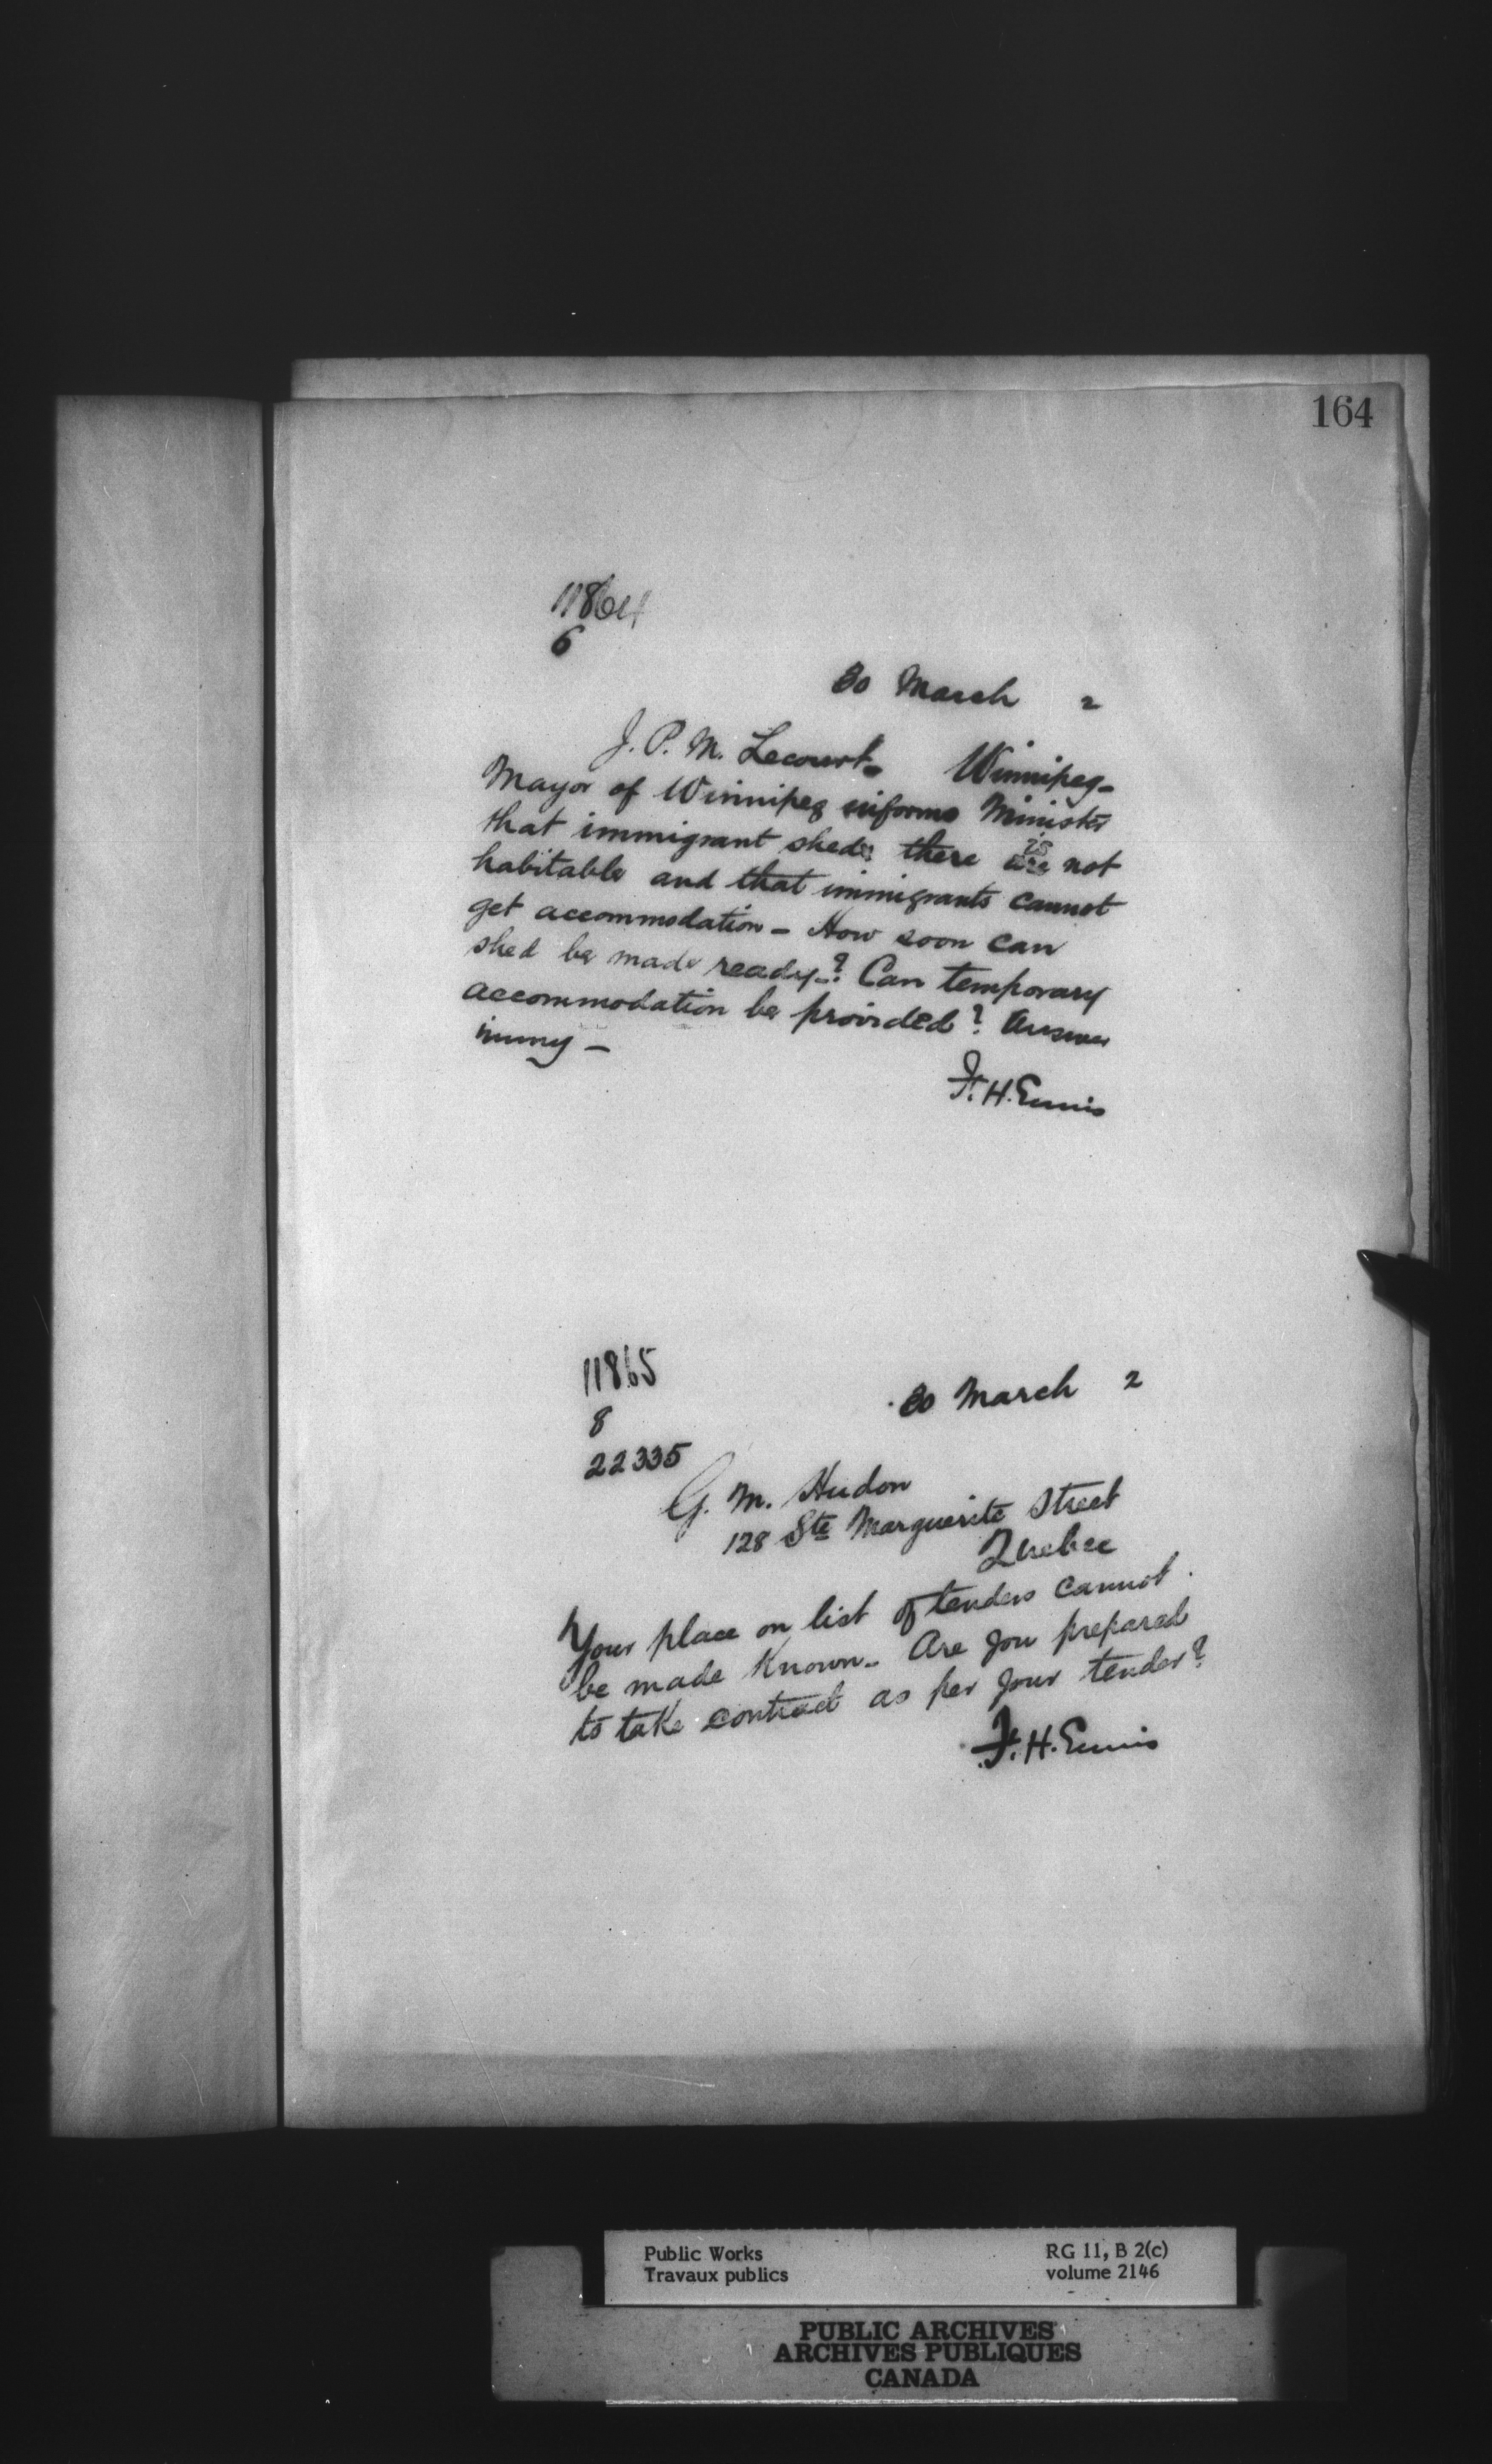 164
11864
6
30 March 2
J. P. M. Lecourt - Winnipeg -
Mayor of Winnipeg informs Minister
that immigrant shed there is not
habitable and that immigrants cannot
get accommodation - How soon can
shed be made ready -? Can temporary
accommodation be provided? Answer
immy -
F. H. Ennis
11865
8
22335
30 March 2
G. M. Hudon
128 Ste Marguerite Street
Quebec
Your place on list of tenders cannot
be made known - Are you prepared
to take contract as per your tender?
F. H. Ennis
Public Works RG 11, B 2(c)
Travaux publics volume 2146
PUBLIC ARCHIVES
ARCHIVES PUBLIQUES
CANADA